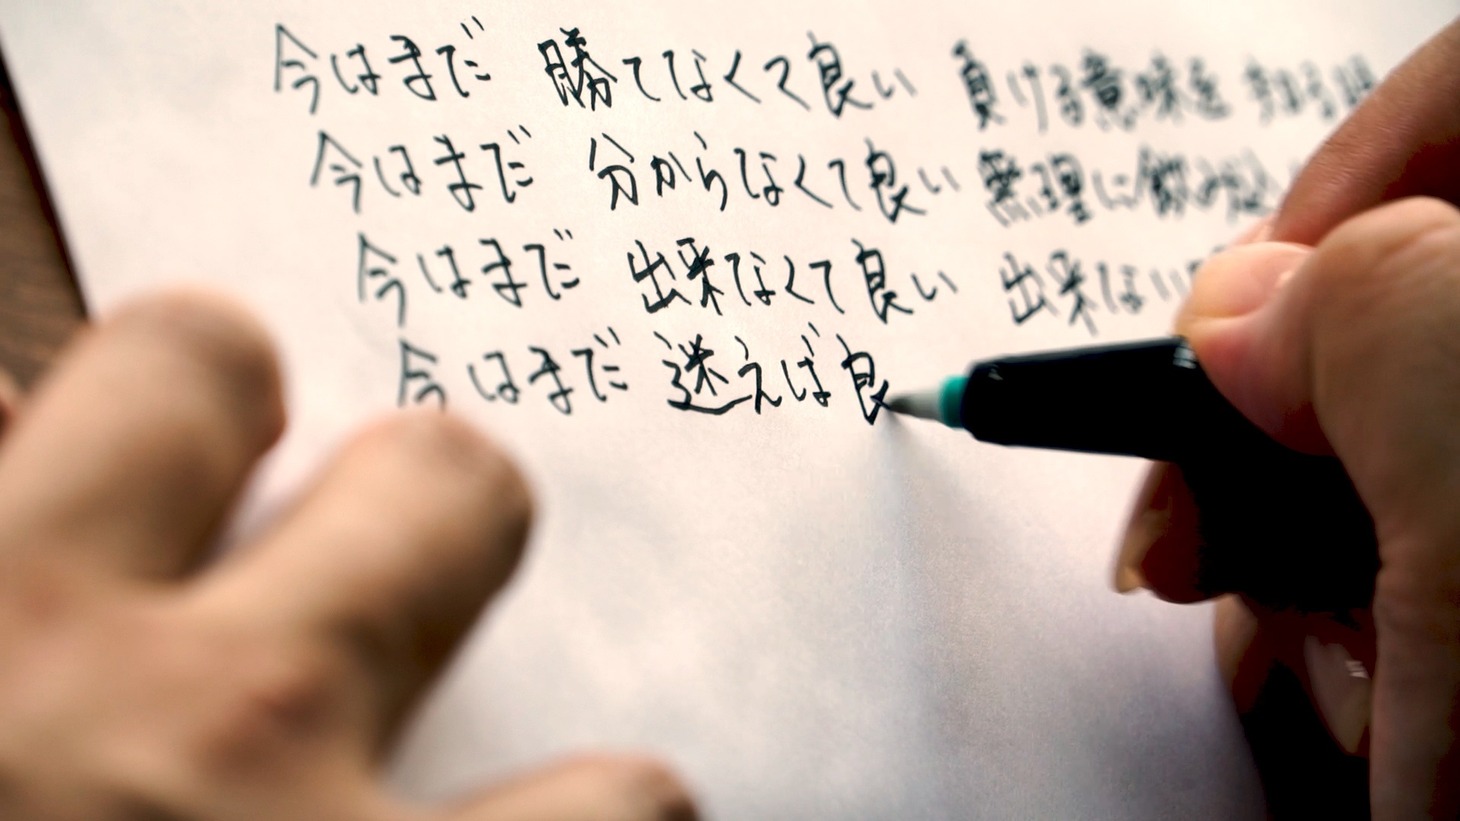 今はまだ 勝てなくて良い 負ける意味を知る
今はまだ 分からなくて良い 無理に飲み込
今はまだ 出来なくて良い 出来ない
今はまだ 迷えば良